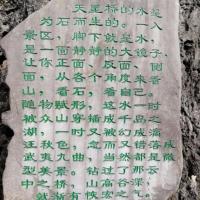 天星桥的水是
为石而生的。入
景区，脚下就是水，
面静静的大镜子
让你正面、反面、侧
面，从各个角度来看
山，看石，看自己。
随物赋形，这水一时
被众山穿插成千岛之
湖，一时又被幻成漓
江秋色，忽而又错落成
武夷九曲，当然都是微
型美景。钻过了那云
中之桥，山高谷深，
就渐有恢宏之气。